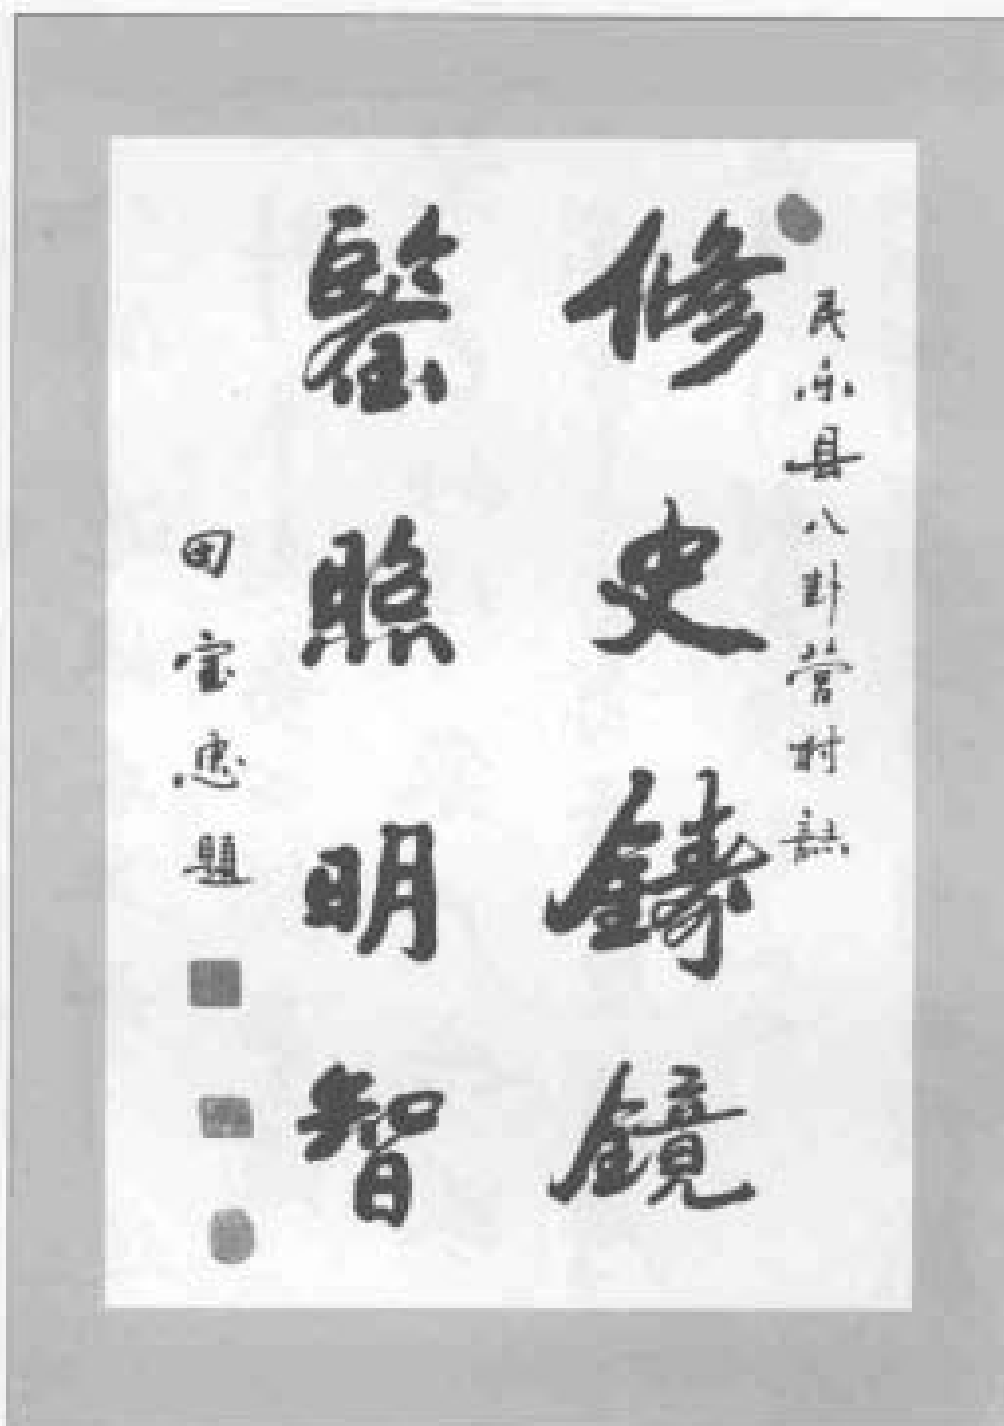 民乐县八卦营村誌
修史鑄鏡
鑒照明智
田宝忠題